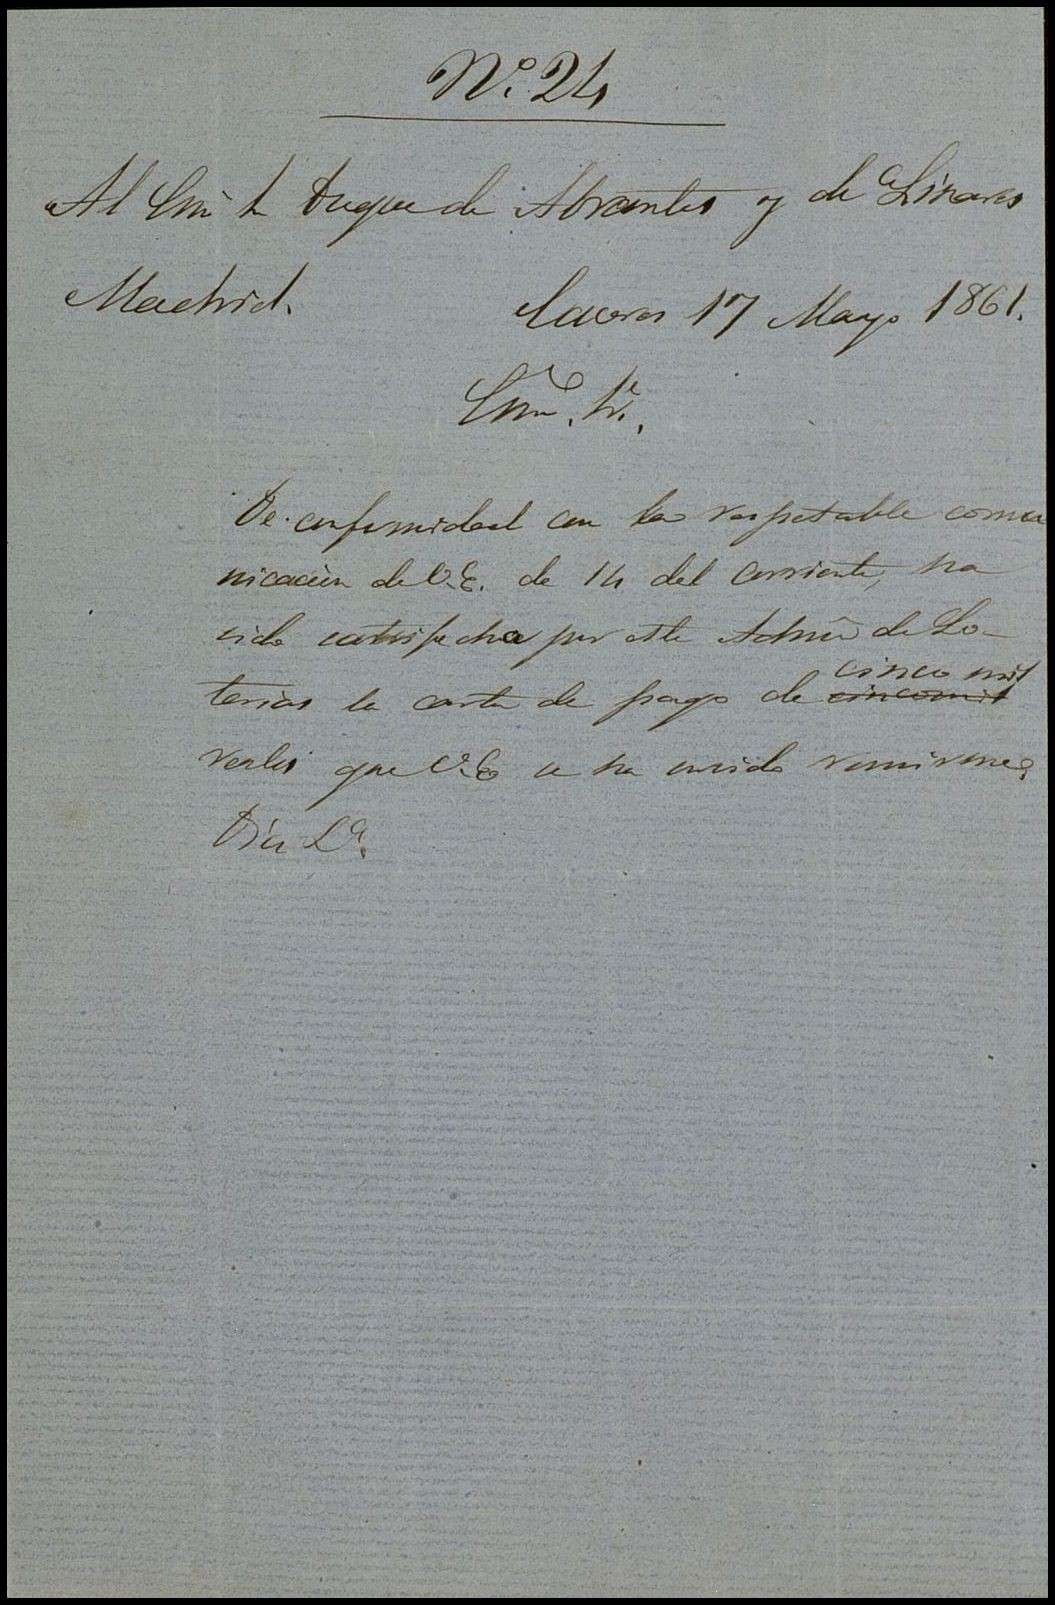 Nº. 24
Al Exmo Sr Duque de Abrantes y de Linares
Madrid.
Caceres 17 Mayo 1861.
Exmo. Sr.
De conformidad con la respetable comu
nicacion de V.E. de 14 del corriente, ha
sido satisfecha por este Admor de Lo-
terias la carta de pago de cinco mil
cinco mil
reales que V.E. se ha servido remitirme.
Dios Gª.